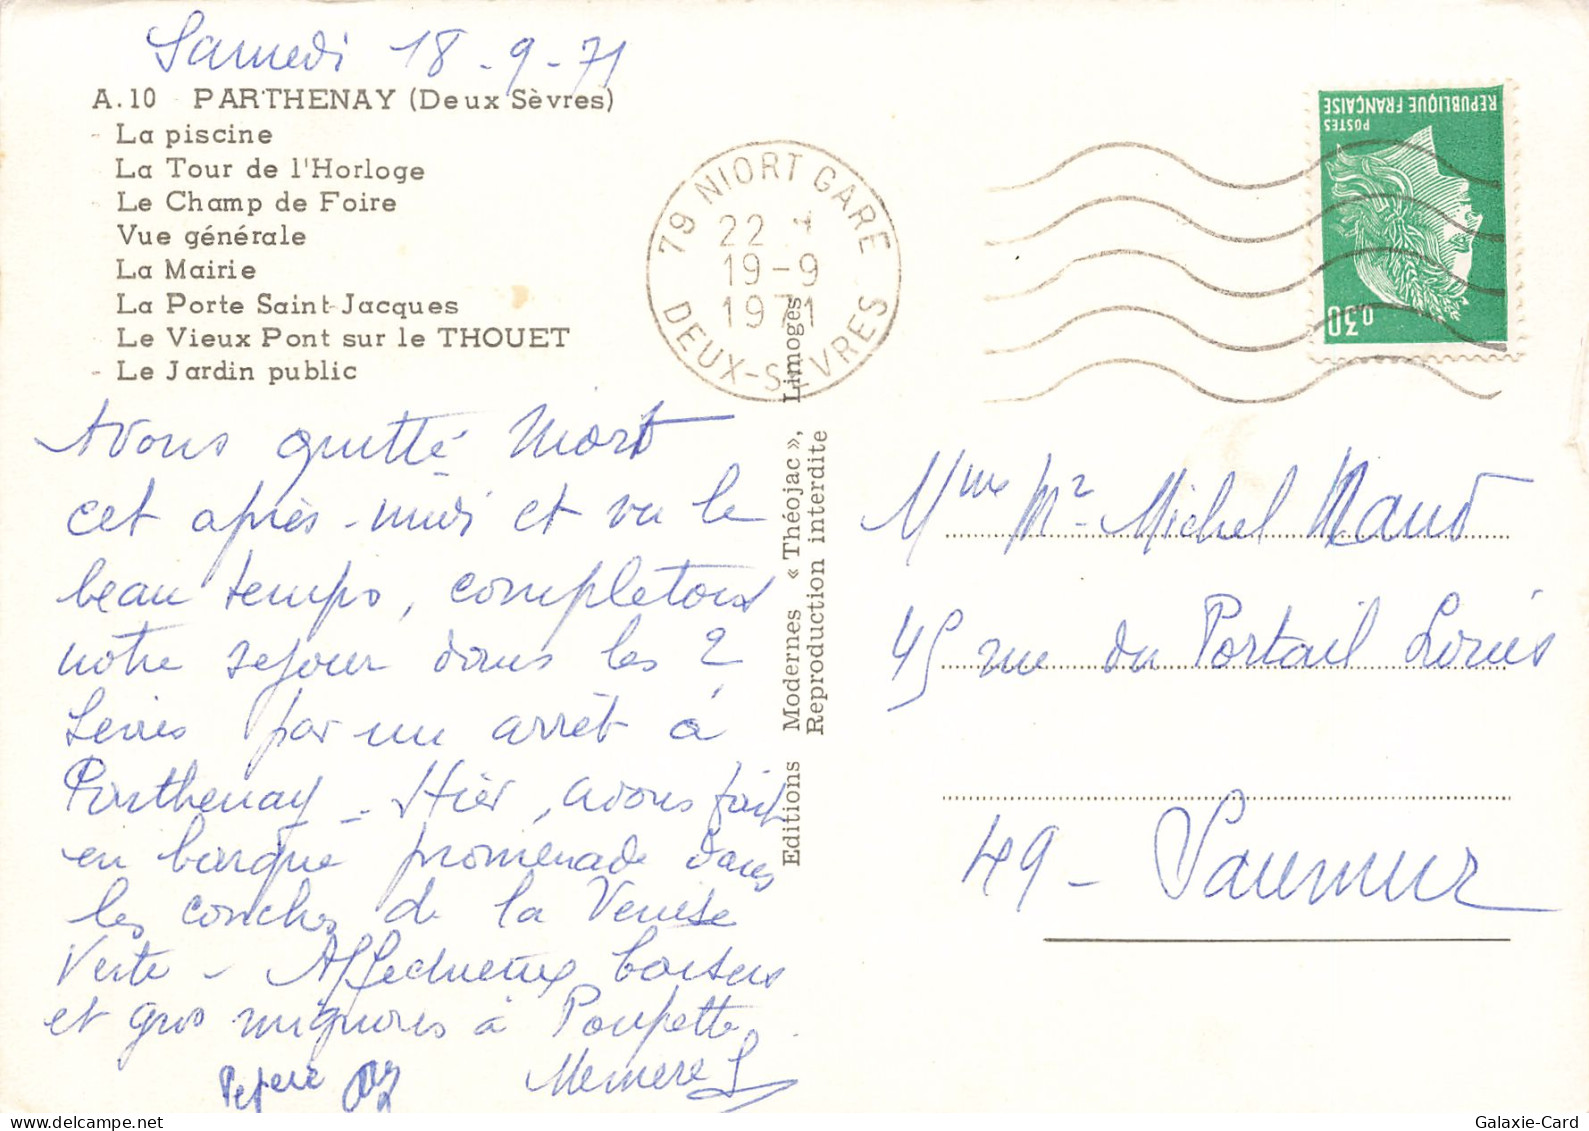 Samedi 18-9-71
A.10 PARTHENAY (Deux Sèvres)
- La piscine
La Tour de l'Horloge
Le Champ de Foire
Vue générale
La Mairie
La Porte Saint-Jacques
Le Vieux Pont sur le THOUET
- Le Jardin public
Avons quitté Niort
cet après-midi et vu le
beau temps, completons
notre sejour dans les 2
Sevres par un arrêt à
Parthenay - Hier, avons fait
en barque promenade dans
les conches de la Venise
Verte - Affectueux baisers
et gros mignons à Poupette.
Pepere Memere
79 NIORT GARE
22
19-9
1971
DEUX-SEVRES
Editions Modernes « Théojac », Limoges
Reproduction interdite
REPUBLIQUE FRANÇAISE
POSTES
0,30
Mme Mr Michel Naud
45 rue du Portail Louis
49 - Saumur
Galaxie-Card